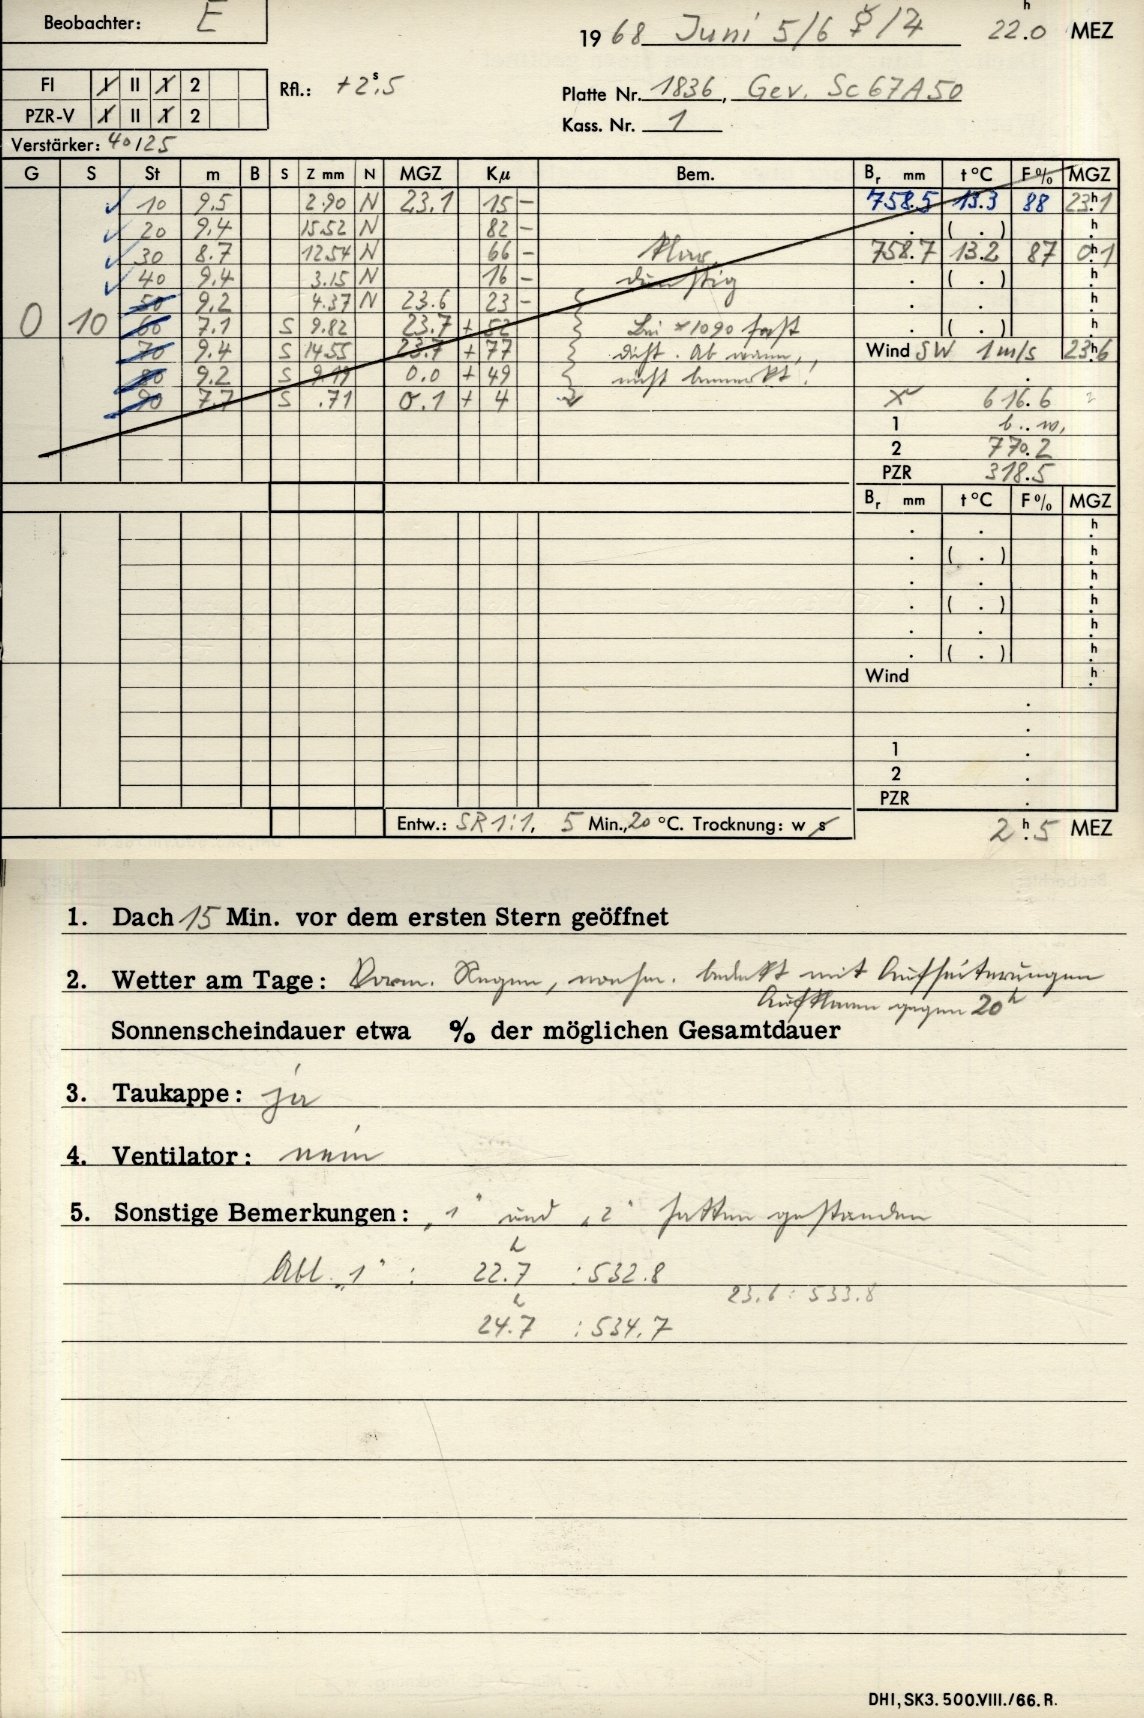 Beobachter: E
1968 Juni 5/6 ☿/♃ 22.0 h MEZ
FI I II 1 2
Rfl.: +2.s5
Platte Nr. 1836, Gev. Sc67A50
PZR-V I II 1 2
Kass. Nr. 1
Verstärker: 40/25
G S St m B S Z mm N MGZ Kµ Bem. Br mm t °C F% MGZ
10 9.5 2.90 N 23.1 15 – 758.5 13.3 88 23.h1
20 9.4 15.52 N 82 – . ( . ) h.
30 8.7 12.54 N 66 – klar, 758.7 13.2 87 0.h1
40 9.4 3.15 N 16 – dunstig . ( . ) h.
50 9.2 4.37 N 23.6 23 – . . h.
0 10 60 7.1 S 9.82 23.7 + 52 Bei *1090 fast . ( . ) h.
70 9.4 S 14.55 23.7 + 77 dicht. Ab wann, Wind SW 1 m/s 23.h6
80 9.2 S 9.19 0.0 + 49 nicht bemerkt! .
90 7.7 S .71 0.1 + 4 616.6
1 b..w.
2 770.2
PZR 318.5
Br mm t °C F% MGZ
. . h.
. ( . ) h.
. . h.
. ( . ) h.
. . h.
. ( . ) h.
Wind h.
.
.
1 .
2 .
PZR .
Entw.: SR 1:1, 5 Min., 20 °C. Trocknung: w s
2.h5 MEZ
1. Dach 15 Min. vor dem ersten Stern geöffnet
2. Wetter am Tage: Vorm. Regen, nachm. bedeckt mit Aufheiterungen
Aufklaren gegen 20h
Sonnenscheindauer etwa % der möglichen Gesamtdauer
3. Taukappe: ja
4. Ventilator: nein
5. Sonstige Bemerkungen: „1" und „2" hatten gestanden
Abl. „1": 22.h7 : 532.8
23.6 : 533.8
24.h7 : 534.7
DHI, SK3. 500.VIII./66. R.